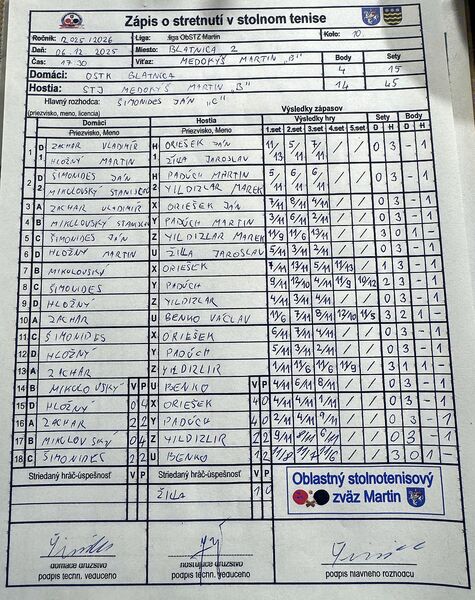 Zápis o stretnutí v stolnom tenise
Ročník: 2025/2026 Liga: liga ObSTZ Martin Kolo: 10.
Deň: 06.12.2025 Miesto: BLATNICA 2
Čas: 17:30 Víťaz: MEDOKÝŠ MARTIN „B" Body Sety
Domáci: OSTK BLATNICA 4 15
Hostia: STJ MEDOKÝŠ MARTIN „B" 14 45
Hlavný rozhodca: ŠIMONIDES JÁN „C"
(priezvisko, meno, licencia) Výsledky zápasov
Domáci Hostia Výsledky hry Sety Body
Priezvisko, Meno Priezvisko, Meno 1.set 2.set 3.set 4.set 5.set D H D H
1 D1 ZACHAR VLADIMÍR H1 ORIEŠEK JÁN 11/13 5/11 7/11 / / 0 3 - 1
HLOŽNÝ MARTIN ŽILLA JAROSLAV
2 D2 ŠIMONIDES JÁN H2 PADÚCH MARTIN 5/11 6/11 6/11 / / 0 3 - 1
MIKLOVSKÝ STANISLAV YILDIZLAR MAREK
3 A ZACHAR VLADIMÍR X ORIEŠEK JÁN 7/11 8/11 4/11 / / 0 3 - 1
4 B MIKLOVSKÝ Y PADÚCH MARTIN 3/11 6/11 2/11 / / 0 3 - 1
5 C ŠIMONIDES JÁN Z YILDIZLAR MAREK 11/9 11/6 13/11 / / 3 0 1 -
6 D HLOŽNÝ MARTIN U ŽILLA JAROSLAV 5/11 3/11 2/11 / / 0 3 - 1
7 B MIKLOVSKÝ X ORIEŠEK 7/11 13/11 5/11 11/13 / 1 3 - 1
8 C ŠIMONIDES Y PADÚCH 8/11 12/10 4/11 11/9 10/12 2 3 - 1
9 D HLOŽNÝ Z YILDIZLAR 4/11 3/11 4/11 / / 0 3 - 1
10 A ZACHAR U BENKO VÁCLAV 11/6 7/11 8/11 12/10 11/5 3 2 1 -
11 C ŠIMONIDES X ORIEŠEK 6/11 7/11 4/11 / / 0 3 - 1
12 D HLOŽNÝ Y PADÚCH 5/11 3/11 2/11 / / 0 3 - 1
13 A ZACHAR Z YILDIZLIR 1/11 11/6 11/6 11/9 / 3 1 1 -
14 B MIKLOVSKÝ V P U BENKO V P 4/11 6/11 8/11 / / 0 3 - 1
15 D HLOŽNÝ 0 4 X ORIEŠEK 4 0 2/11 4/11 4/11 / / 0 3 - 1
16 A ZACHAR 2 2 Y PADÚCH 4 0 2/11 4/11 9/11 / / 0 3 - 1
17 B MIKLOVSKÝ 0 4 Z YILDIZLIR 2 2 9/11 8/11 6/11 / / 0 3 - 1
18 C ŠIMONIDES 2 2 U BENKO 2 2 / / 3 0 1 -
Striedaný hráč-úspešnosť V P Striedaný hráč-úspešnosť V P
ŽILLA 1 0
Oblastný stolnotenisový
zväz Martin
domáce družstvo hosťujúce družstvo
podpis techn. vedúceho podpis techn. vedúceho podpis hlavného rozhodcu